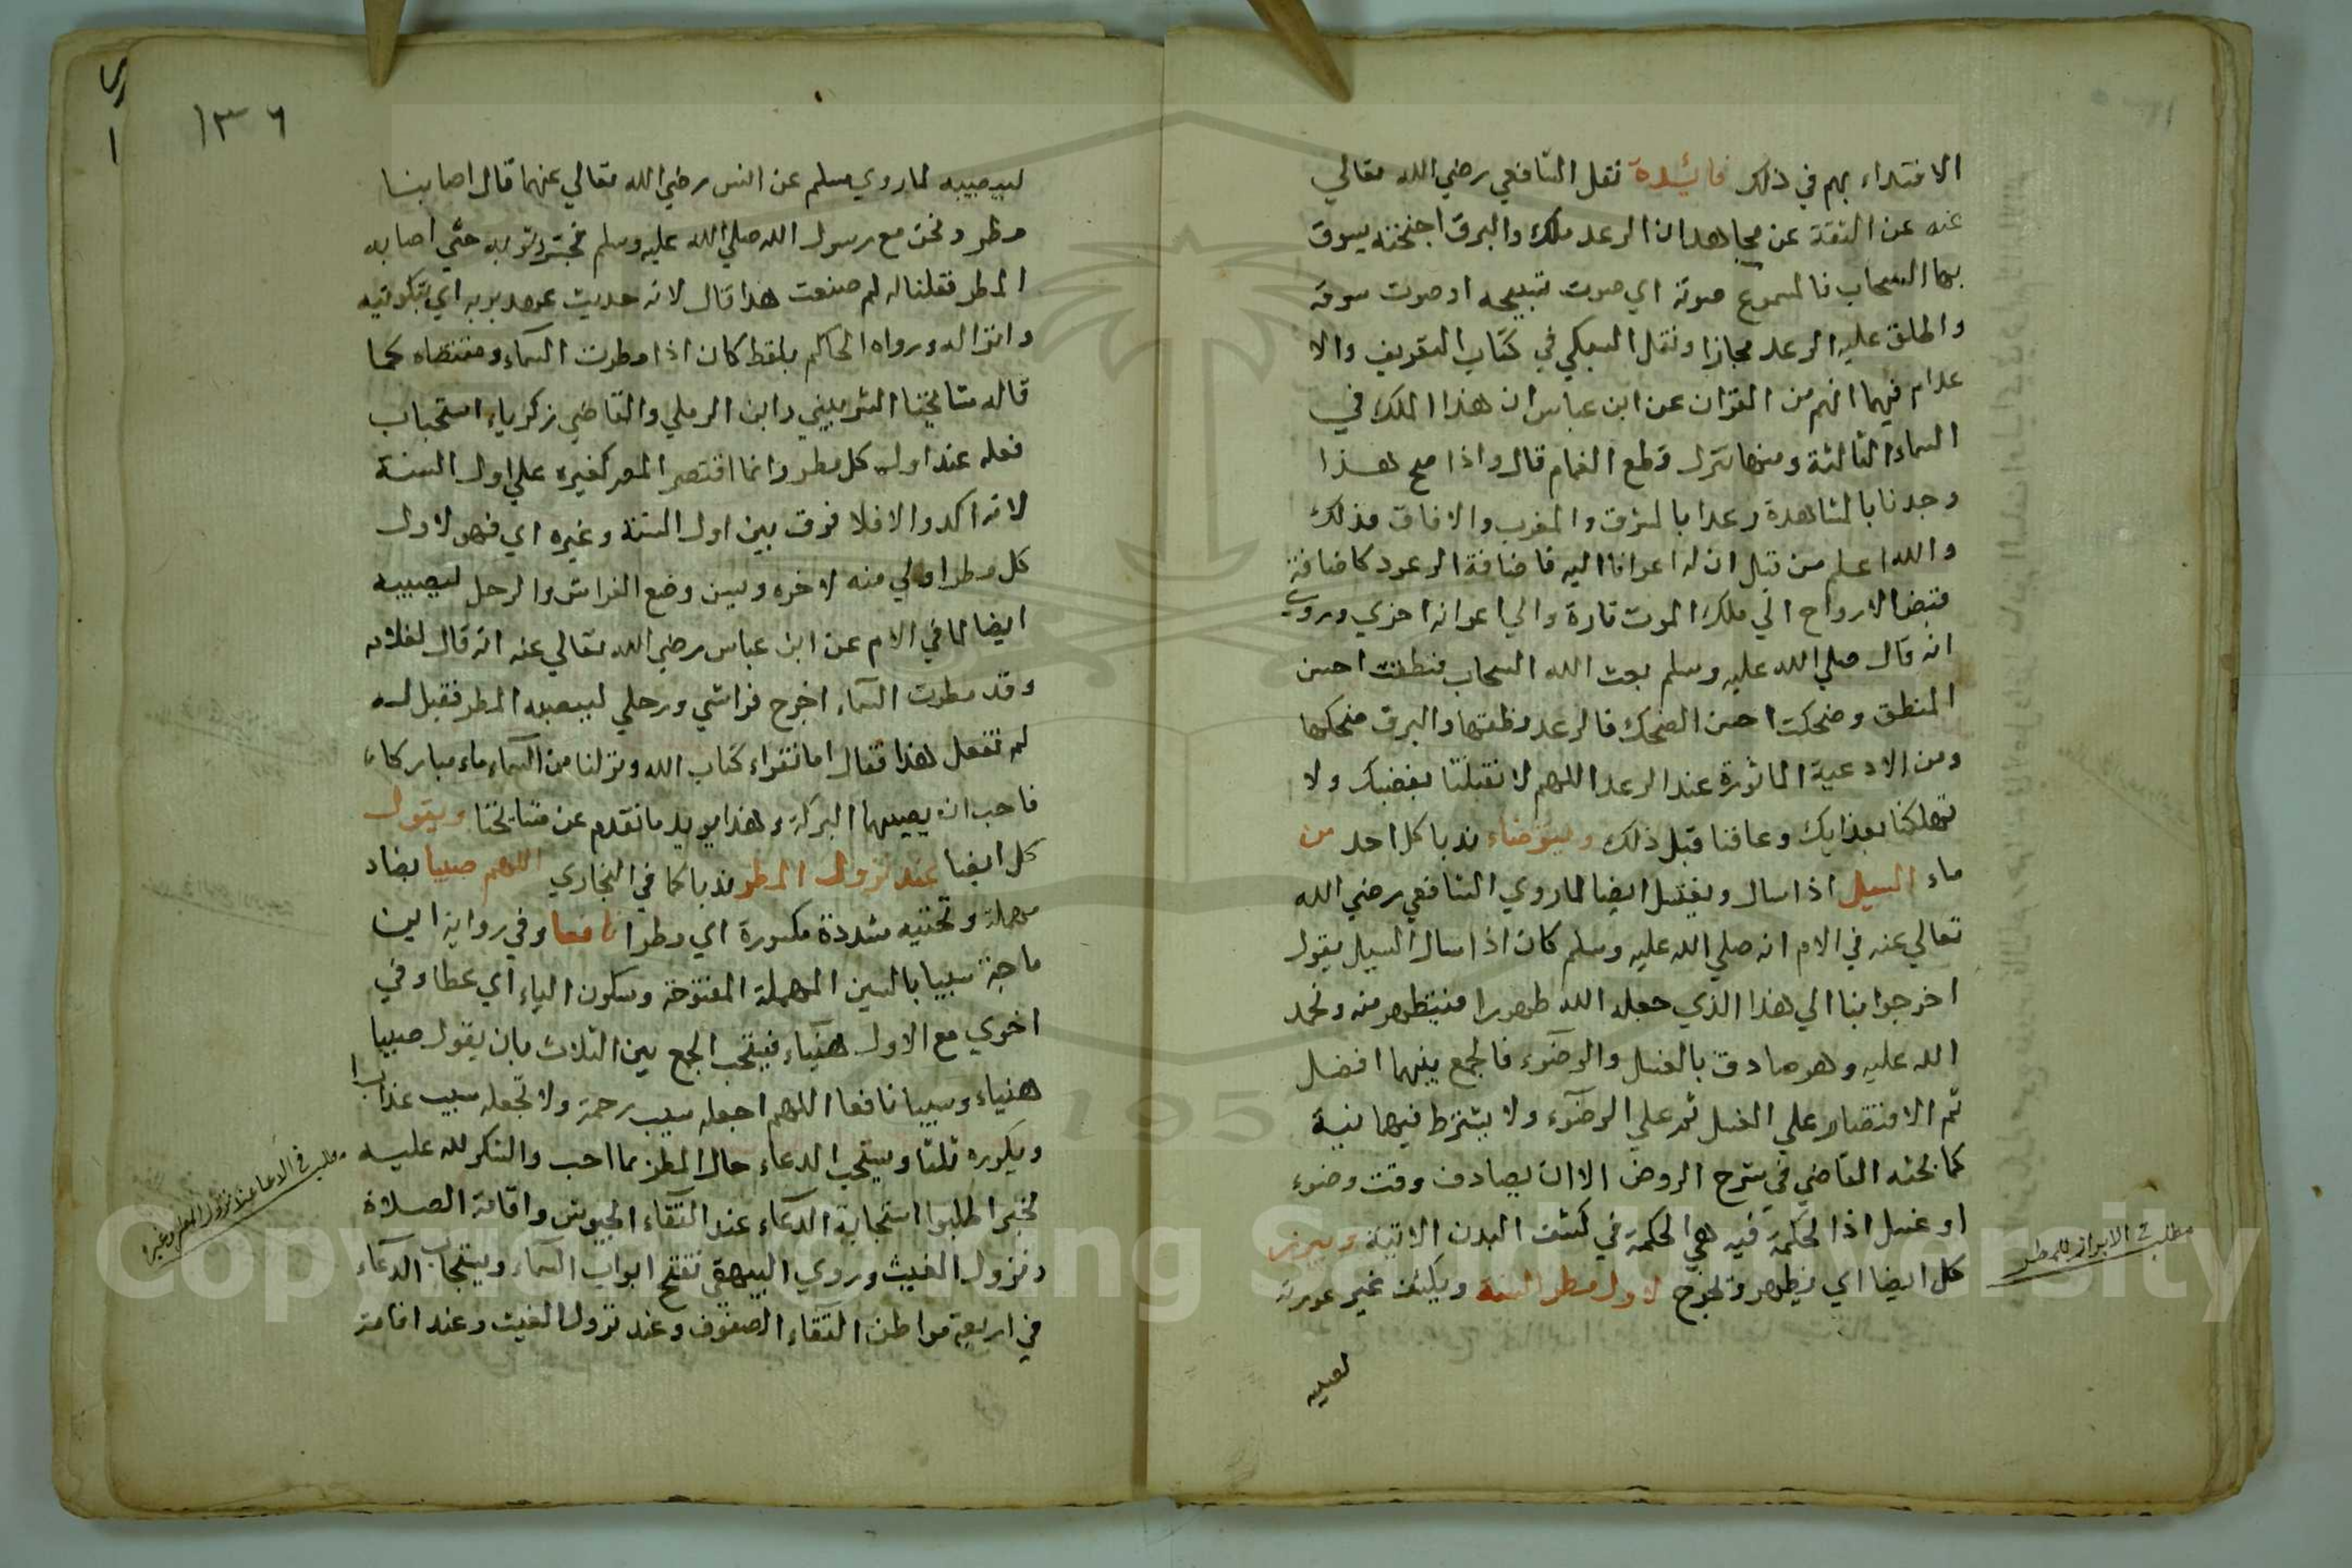 الاقتداء بهم في ذلك فائدة نقل الشافعي رضي الله تعالي
عنه عن الثقة عن مجاهد ان الرعد ملك والبرق اجنحته يسوق
بها السحاب فالمسموع صوته اي صوت تسبيحه او صوت سوقه
واطلق عليه الرعد مجازا ونقل السبكي في كتاب التعريف والا
علام فيما ابهم من القران عن ابن عباس ان هذا الملك في
السماء الثالثة ومنها تنزل قطع الغمام قال واذا صح هذا
وجدنا بالمشاهدة رعدا بالمشرق والمغرب والافاق فذلك
والله اعلم من قبل ان له اعوانا اليه فاضافة الرعود كاضافة
قبض الارواح الي ملك الموت تارة والي اعوانه اخري وروي
انه قال صلي الله عليه وسلم بعث الله السحاب فنطقت احسن
المنطق وضحكت احسن الضحك فالرعد نطقها والبرق ضحكها
ومن الادعية الماثورة عند الرعد اللهم لا تقتلنا بغضبك ولا
تهلكنا بعذابك وعافنا قبل ذلك ويتوضاء ندبا كل احد من
ماء السيل اذا سال ويغتسل ايضا لما روي الشافعي رضي الله
تعالي عنه في الام انه صلي الله عليه وسلم كان اذا سال السيل يقول
اخرجوا بنا الي هذا الذي جعله الله طهورا فنتطهر منه ونحمد
الله عليه وهو صادق بالغسل والوضوء فالجمع بينهما افضل
ثم الاقتصار علي الغسل ثم علي الوضوء ولا يشترط فيهما نية
كما بحثه القاضي في شرح الروض الا ان يصادف وقت وضوء
او غسل اذا لحكمة فيه هي الحكمة في كشف البدن الاتية ويبرز
كل ايضا اي يظهر ويخرج لاول مطر السنة ويكشف غير عورته
ليصيبه
مطلب في الابراز للمطر
١٣٦
ليصيبه لما روي مسلم عن انس رضي الله تعالي عنهما قال اصابنا
مطر ونحن مع رسول الله صلي الله عليه وسلم فحسر ثوبه حتي اصابه
المطر فقلنا له لم صنعت هذا قال لانه حديث عهد بربه اي بتكوينه
وانزاله ورواه الحاكم بلفظ كان اذا مطرت السماء ومقتضاه كما
قاله مشايخنا الشربيني وابن الرملي والقاضي زكرياء استحباب
فعله عند اول كل مطر وانما اقتصر المصر كغيره علي اول السنة
لانه اكد والا فلا فرق بين اول السنة وغيره اي فهو لاول
كل مطر اولي منه لاخره ويسن وضع الفراش والرحل ليصيبه
ايضا لما في الام عن ابن عباس رضي الله تعالي عنه انه قال لغلامه
وقد مطرت السماء اخرج فراشي ورحلي ليصيبه المطر فقيل له
لم تفعل هذا فقال اما تقراء كتاب الله ونزلنا من السماء ماء مباركا
فاحب ان يصيبهما البركة وهذا يويد ما تقدم عن مشايخنا ويقول
كل ايضا عند نزول المطر ندبا كما في البخاري اللهم صيبا بصاد
مهملة وتحتيه مشددة مكسورة اي مطرا نافعا وفي رواية ابن
ماجة سيبا بالسين المهملة المفتوحة وسكون الياء اي عطا وفي
اخري مع الاول هنياء فيستحب الجمع بين الثلاث بان يقول صيبا
هنياء وسيبا نافعا اللهم اجعله سيب رحمة ولا تجعله سيب عذابا
ويكرره ثلثا ويستحب الدعاء حال المطر بما احب والشكر لله عليه
لخبر اطلبوا استجابة الدعاء عند التقاء الجيوش واقامة الصلاة
ونزول الغيث وروي البيهقي تفتح ابواب السماء ويستجاب الدعاء
في اربعة مواطن التقاء الصفوف وعند نزول الغيث وعند اقامة
مطلب في الدعا عند نزول المطر وغيره
Copyright © King Saud University
195